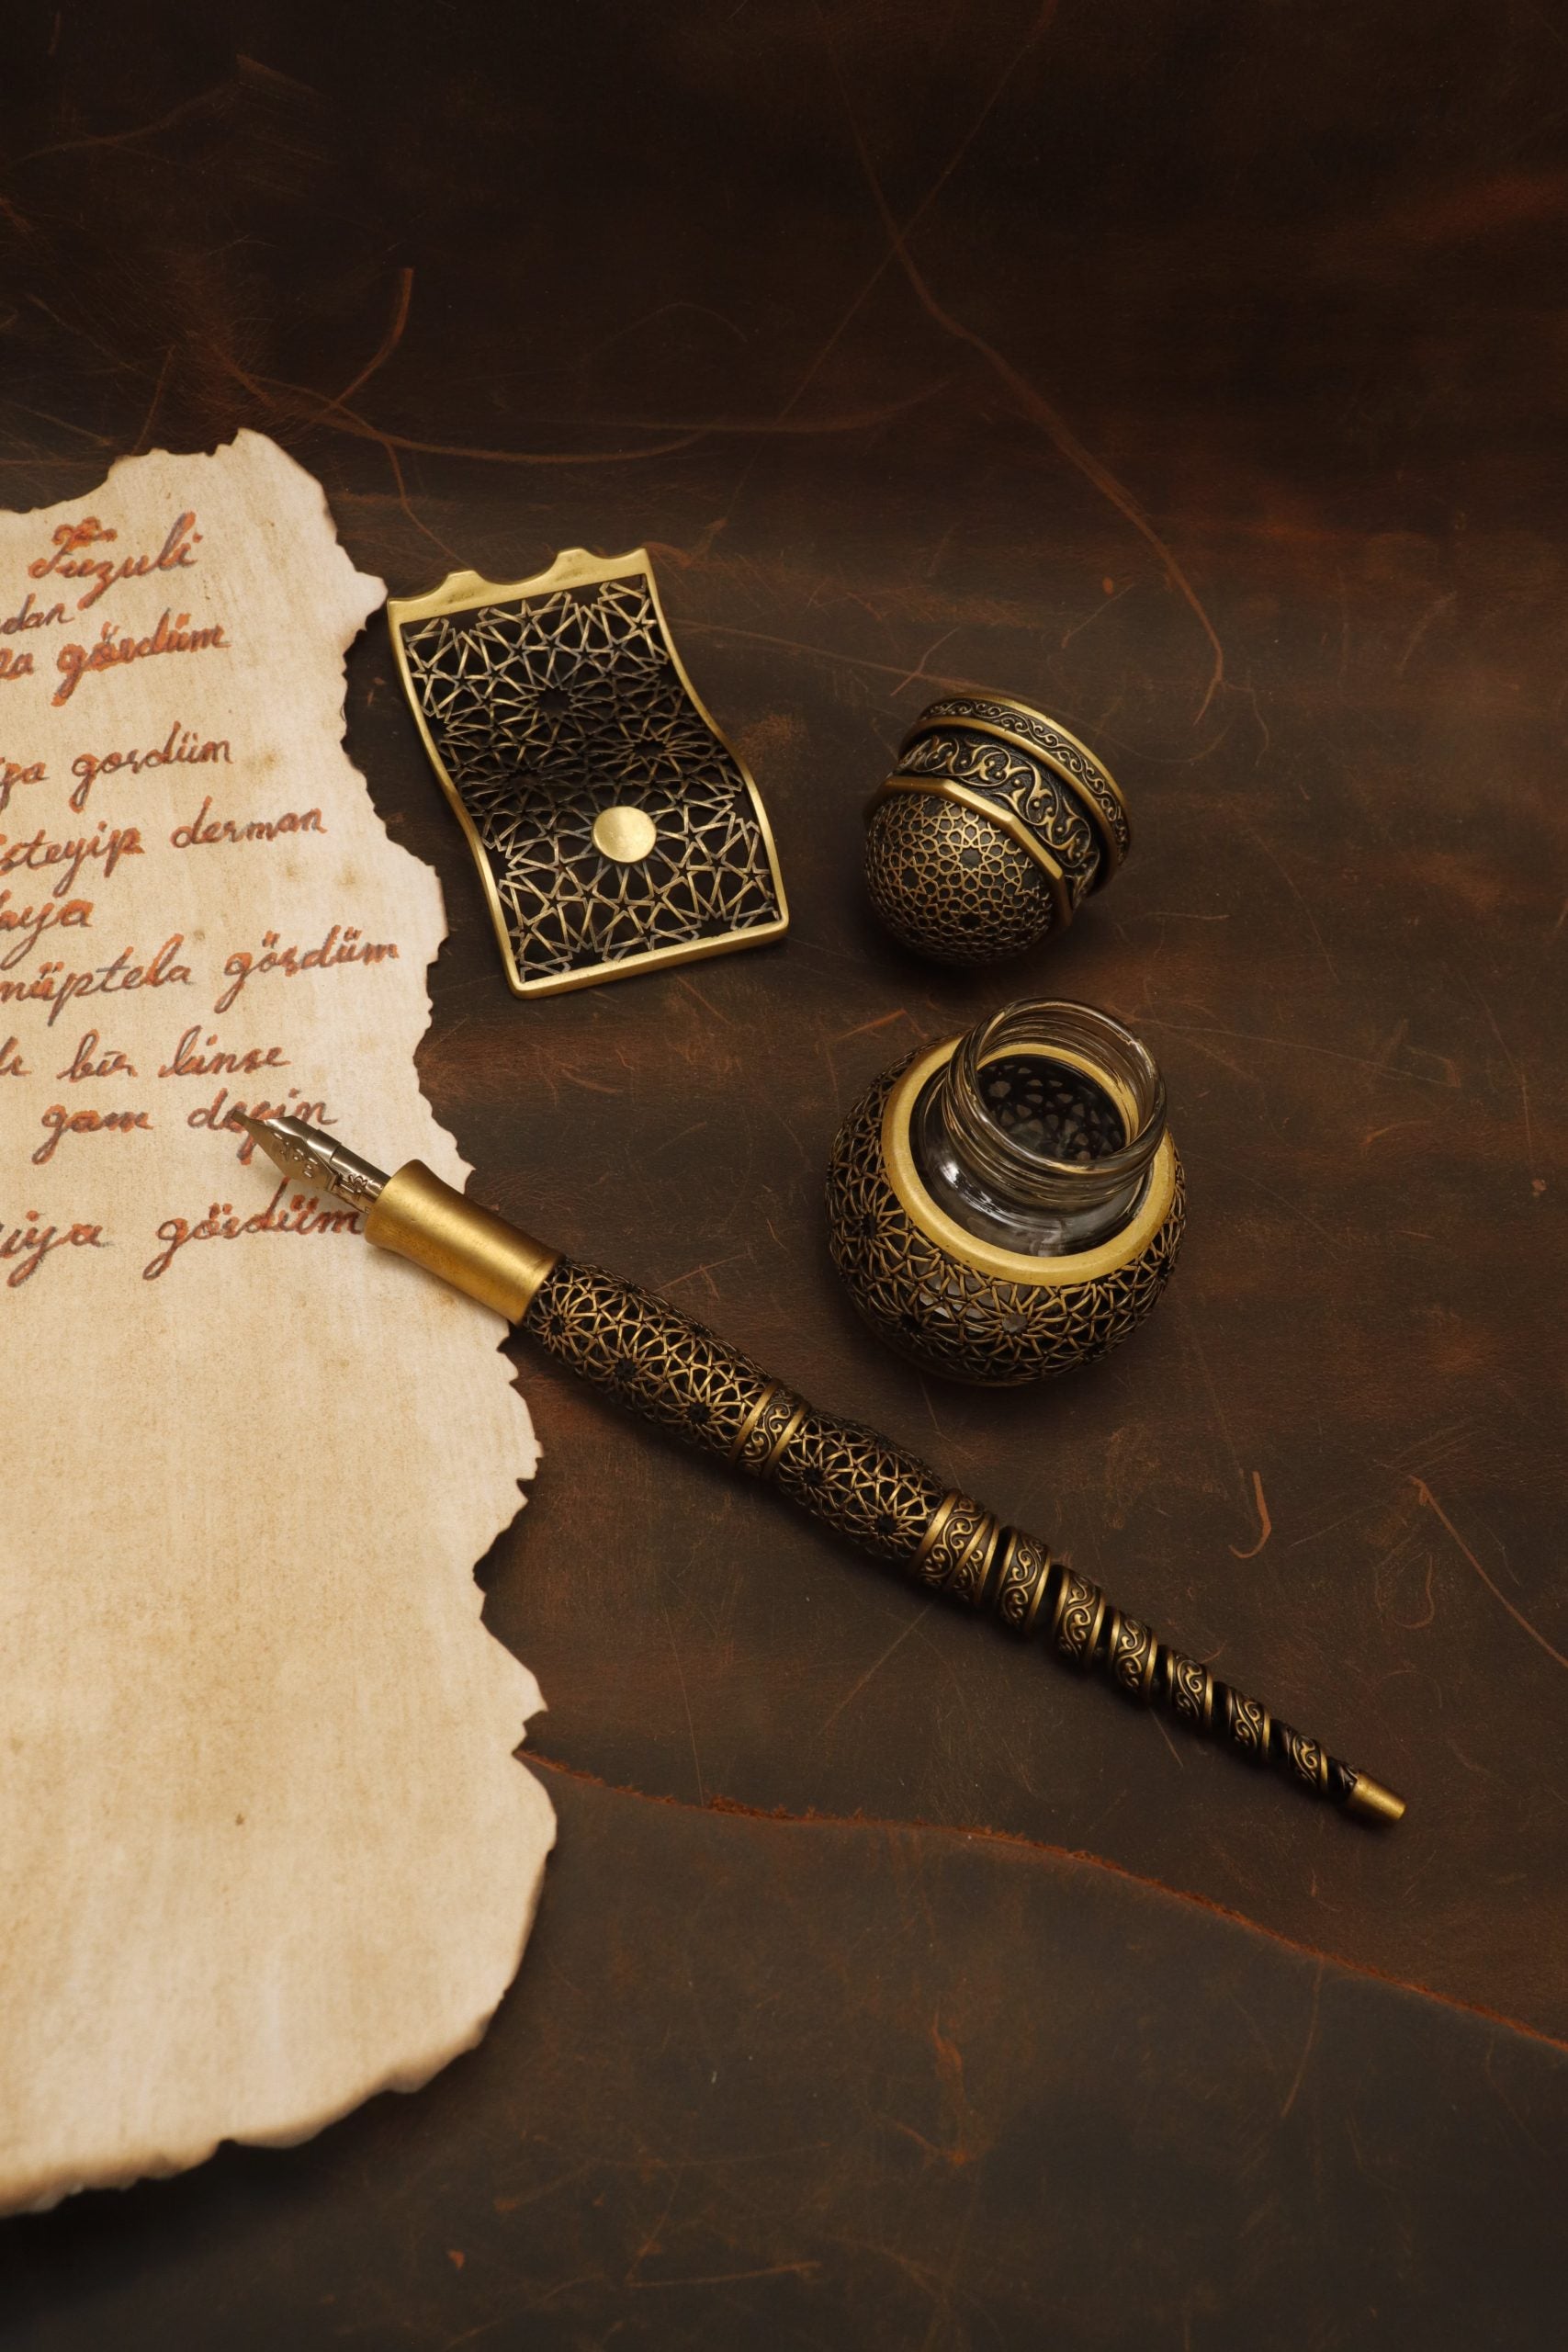 Fuzuli
dan
ra gördüm
ya gordüm
isteyip derman
aya
müptela gördüm
bir kimse
gam değin
iya gördüm